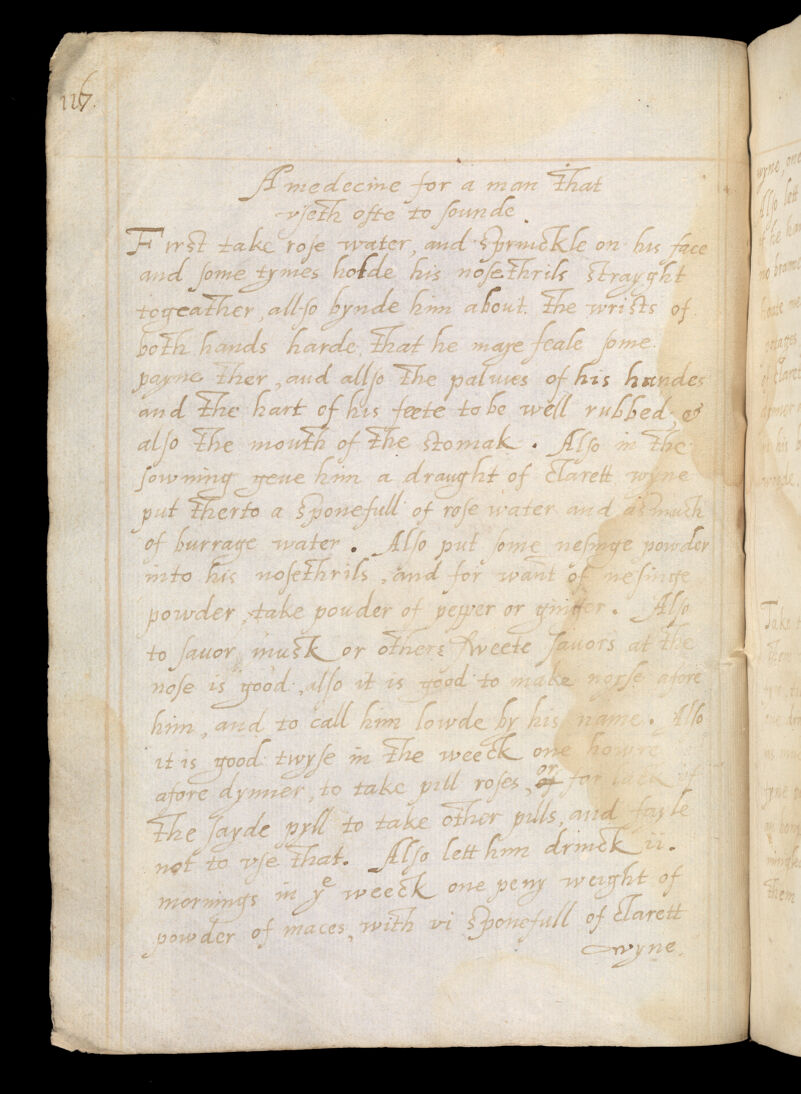 116
A medecine for a man that
vseth ofte to sounde.
First take rose water, and Sprinckle on his face
and some tymes holde his nosethrils strayght
togeather, allso bynde him about the wrists of
both hands harde, that he maye feale some
payne ther, and allso the palmes of his handes
and the hart of his feete to be well rubbed &
also the mouth of the stomak. Also in the
sowning geue him a draught of clarett wyne
put therto a Sponefull of rose water and asmuch
of burrage water. Also put some nesinge powder
into his nosethrils, and for want of nesinge
powder, take pouder of pepper or ginger. Also
to savor musk or others sweete savors at the
nose is good, also it is good to make noyse afore
him, and to call him lowde by his name. Also
it is good twyse in the weeck one howre
afore dynner, to take pill roses, or for lack of
the sayde pyll to take other pills, and fayle
not to vse that. Also lett him drinck ii.
mornings in ye weeck one peny weight of
powder of maces, with vi Sponefull of clarett
wyne.
wyne, one
Also lett
of the
no
potages
of claret
dynner
his
Take
them
tyme
them